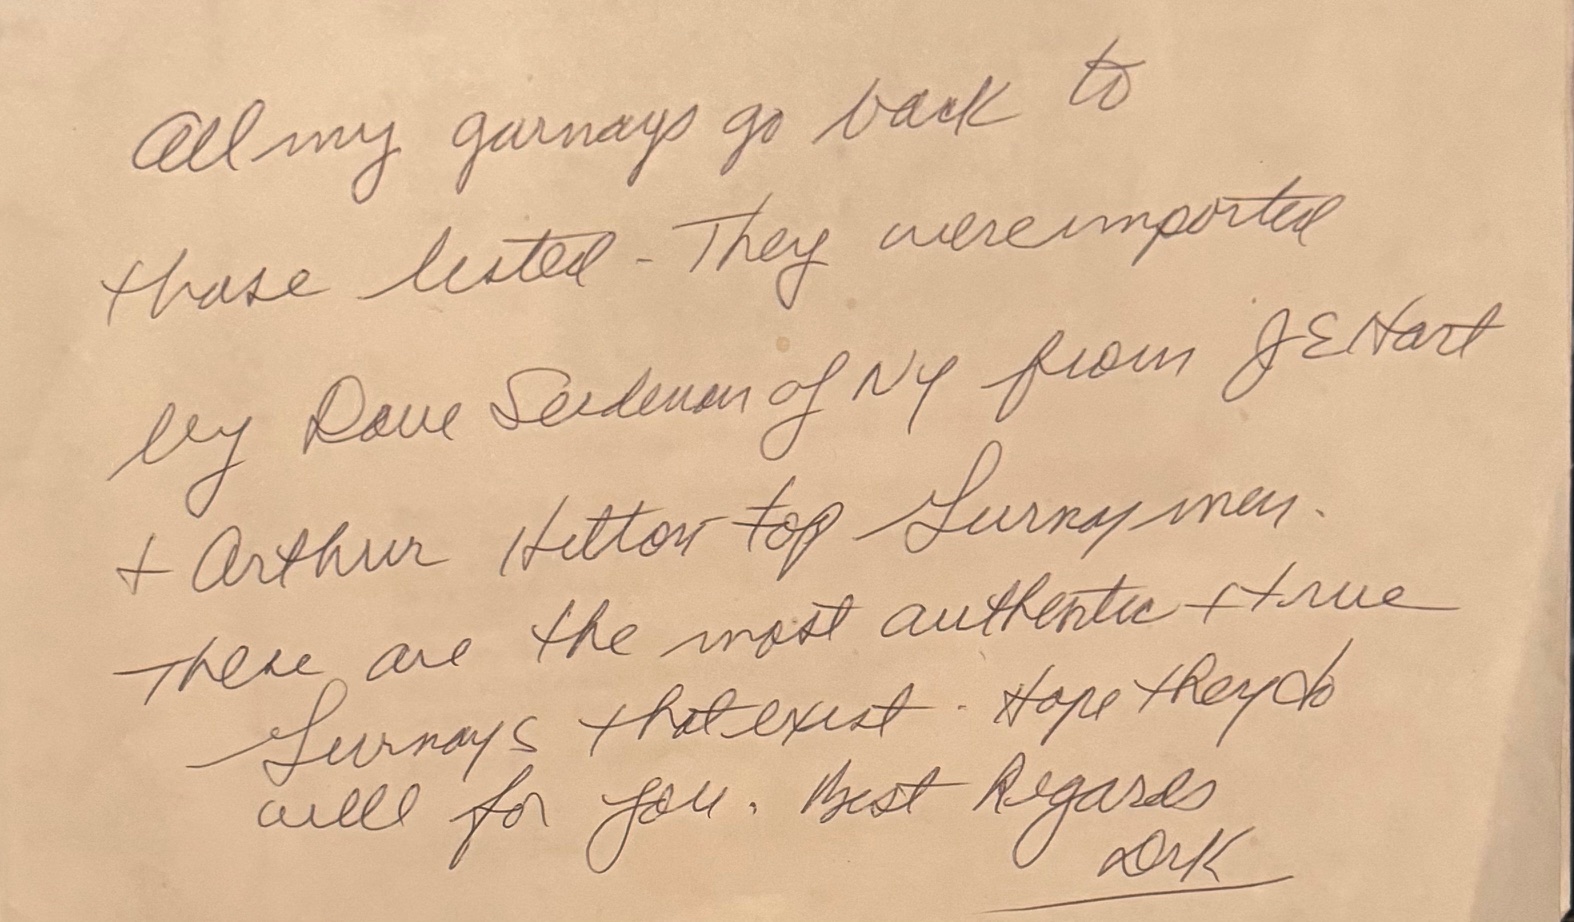 All my gurnays go back to
those listed - They were imported
by Dave Seideman of NY from J E Hart
+ Arthur Hilton top Gurnay men.
These are the most authentic + true
Gurnays that exist. Hope they do
well for you. Best Regards
DrK